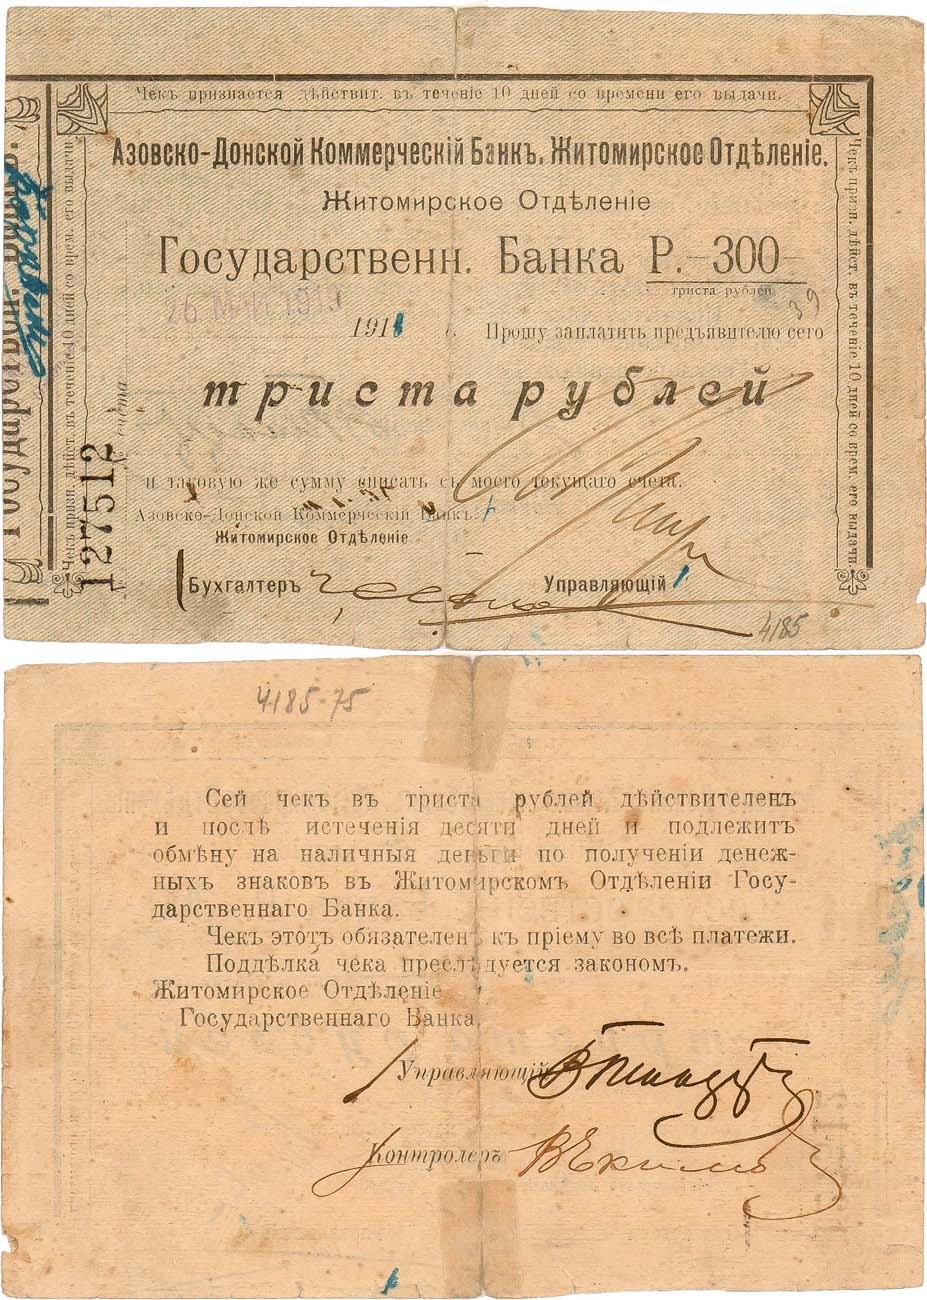 Чекъ признается дѣйствит. въ теченіе 10 дней со времени его выдачи.
Азовско-Донской Коммерческій Банкъ. Житомирское Отдѣленіе.
Житомирское Отдѣленіе
Государственн. Банка Р. -300-
триста рублей
39
1918 г. Прошу заплатить предъявителю сего
триста рублей
и таковую же сумму списать съ моего текущаго счета.
Азовско-Донской Коммерческій Банкъ.
Житомирское Отдѣленіе
Бухгалтеръ Управляющій
4185
Чекъ призн. дѣйст. въ теченіе 10 дней со врем. его выдачи
№ счета
127512
Государствен. Банкъ.
Чекъ призн. дѣйст. въ теченіе 10 дней со врем. его выдачи
4185-75
Сей чекъ въ триста рублей дѣйствителенъ
и послѣ истеченія десяти дней и подлежитъ
обмѣну на наличныя деньги по полученіи денеж-
ныхъ знаковъ въ Житомирскомъ Отдѣленіи Госу-
дарственнаго Банка.
Чекъ этотъ обязателенъ къ пріему во всѣ платежи.
Поддѣлка чека преслѣдуется закономъ.
Житомирское Отдѣленіе
Государственнаго Банка.
Управляющій
Контролеръ